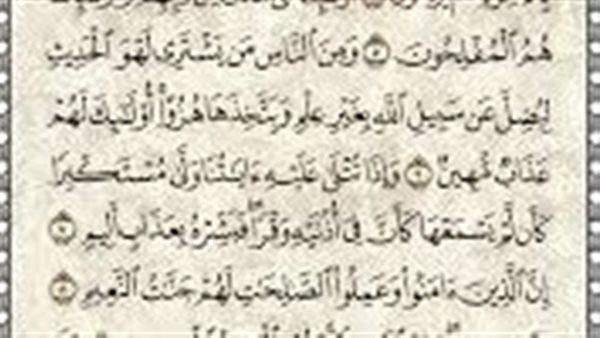 هُمُ ٱلْمُفْلِحُونَ ٥ وَمِنَ ٱلنَّاسِ مَن يَشْتَرِى لَهْوَ ٱلْحَدِيثِ
لِيُضِلَّ عَن سَبِيلِ ٱللَّهِ بِغَيْرِ عِلْمٍ وَيَتَّخِذَهَا هُزُوًا أُو۟لَٰٓئِكَ لَهُمْ
عَذَابٌ مُّهِينٌ ٦ وَإِذَا تُتْلَىٰ عَلَيْهِ ءَايَٰتُنَا وَلَّىٰ مُسْتَكْبِرًا
كَأَن لَّمْ يَسْمَعْهَا كَأَنَّ فِىٓ أُذُنَيْهِ وَقْرًا فَبَشِّرْهُ بِعَذَابٍ أَلِيمٍ ٧
إِنَّ ٱلَّذِينَ ءَامَنُوا۟ وَعَمِلُوا۟ ٱلصَّٰلِحَٰتِ لَهُمْ جَنَّٰتُ ٱلنَّعِيمِ ٨